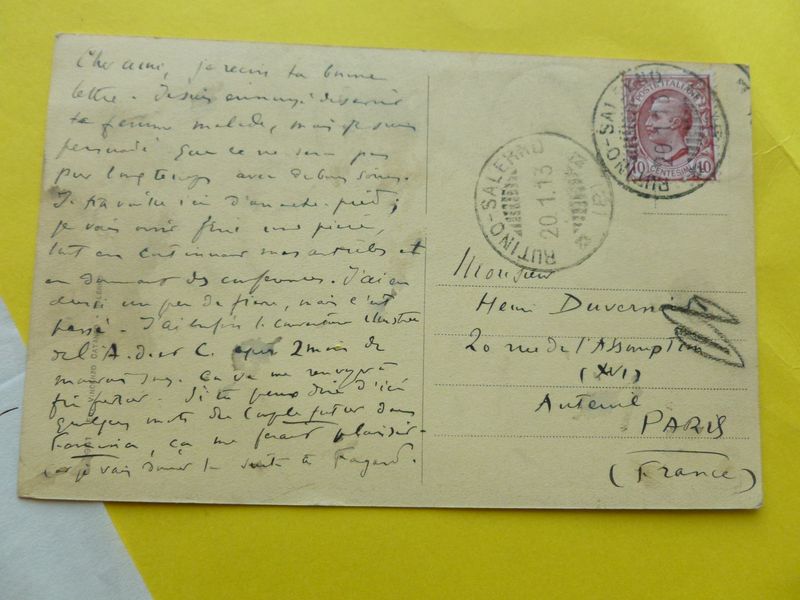 Cher ami, je reçois ta bonne
lettre. Je suis ennuyé de savoir
ta femme malade, mais je suis
persuadé que ce ne sera pas
pour longtemps avec de bons soins.
Je travaille ici d'arrache-pied;
je vais avoir fini une pièce,
tout en continuant mes articles et
en donnant des conférences. J'ai eu
aussi un peu de fièvre, mais c'est
passé. J'ai enfin la couverture illustrée
de l'A. de et C. après 2 mois de
Ça va me
Si tu peux dire d'ici
quelques mots du Couple futur dans
Fantasio, ça me ferait plaisir.
car je vais donner la suite à Fayard.
POSTE ITALIANE
CENTESIMI
10 10
RUTINO-SALERNO
20.1.13
RUTINO-SALERNO
20.1.13
Monsieur
Henri Duvernois
20 rue de l'Assomption
(XVI)
Auteuil
PARIS
(France)